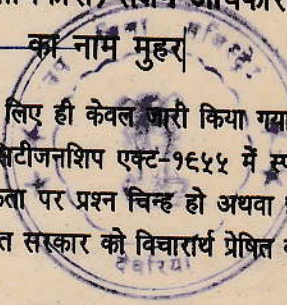 का नाम मुहर
लिए ही केवल जारी किया गया
सिटीजनशिप एक्ट-१९५५ में
पर प्रश्न चिन्ह हो अथवा
सरकार को विचारार्थ प्रेषित
देवरिया